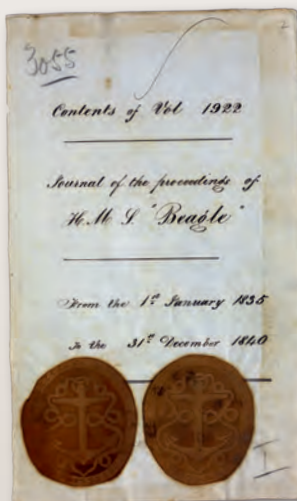 2
3055
Contents of Vol 1922
Journal of the proceedings of
H.M.S. "Beagle"
From the 1st January 1835
to the 31st December 1840
I